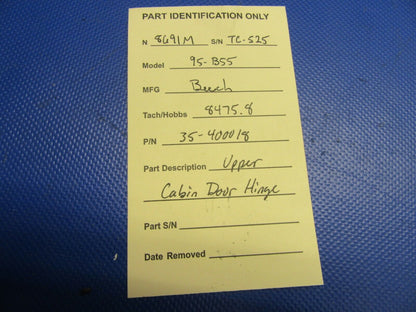 PART IDENTIFICATION ONLY
N 8691M S/N TC-525
Model 95-B55
MFG Beech
Tach/Hobbs 8475.8
P/N 35-400018
Part Description Upper
Cabin Door Hinge
Part S/N
Date Removed